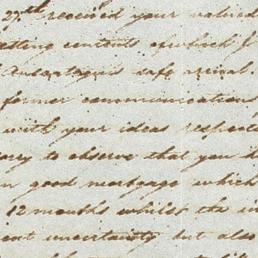 27th received your valued
contents of which I
safe arrival.
former communications
with your ideas respect
ory to observe that you d
good mortgage which
12 months whilst the in
ent uncertainty but also